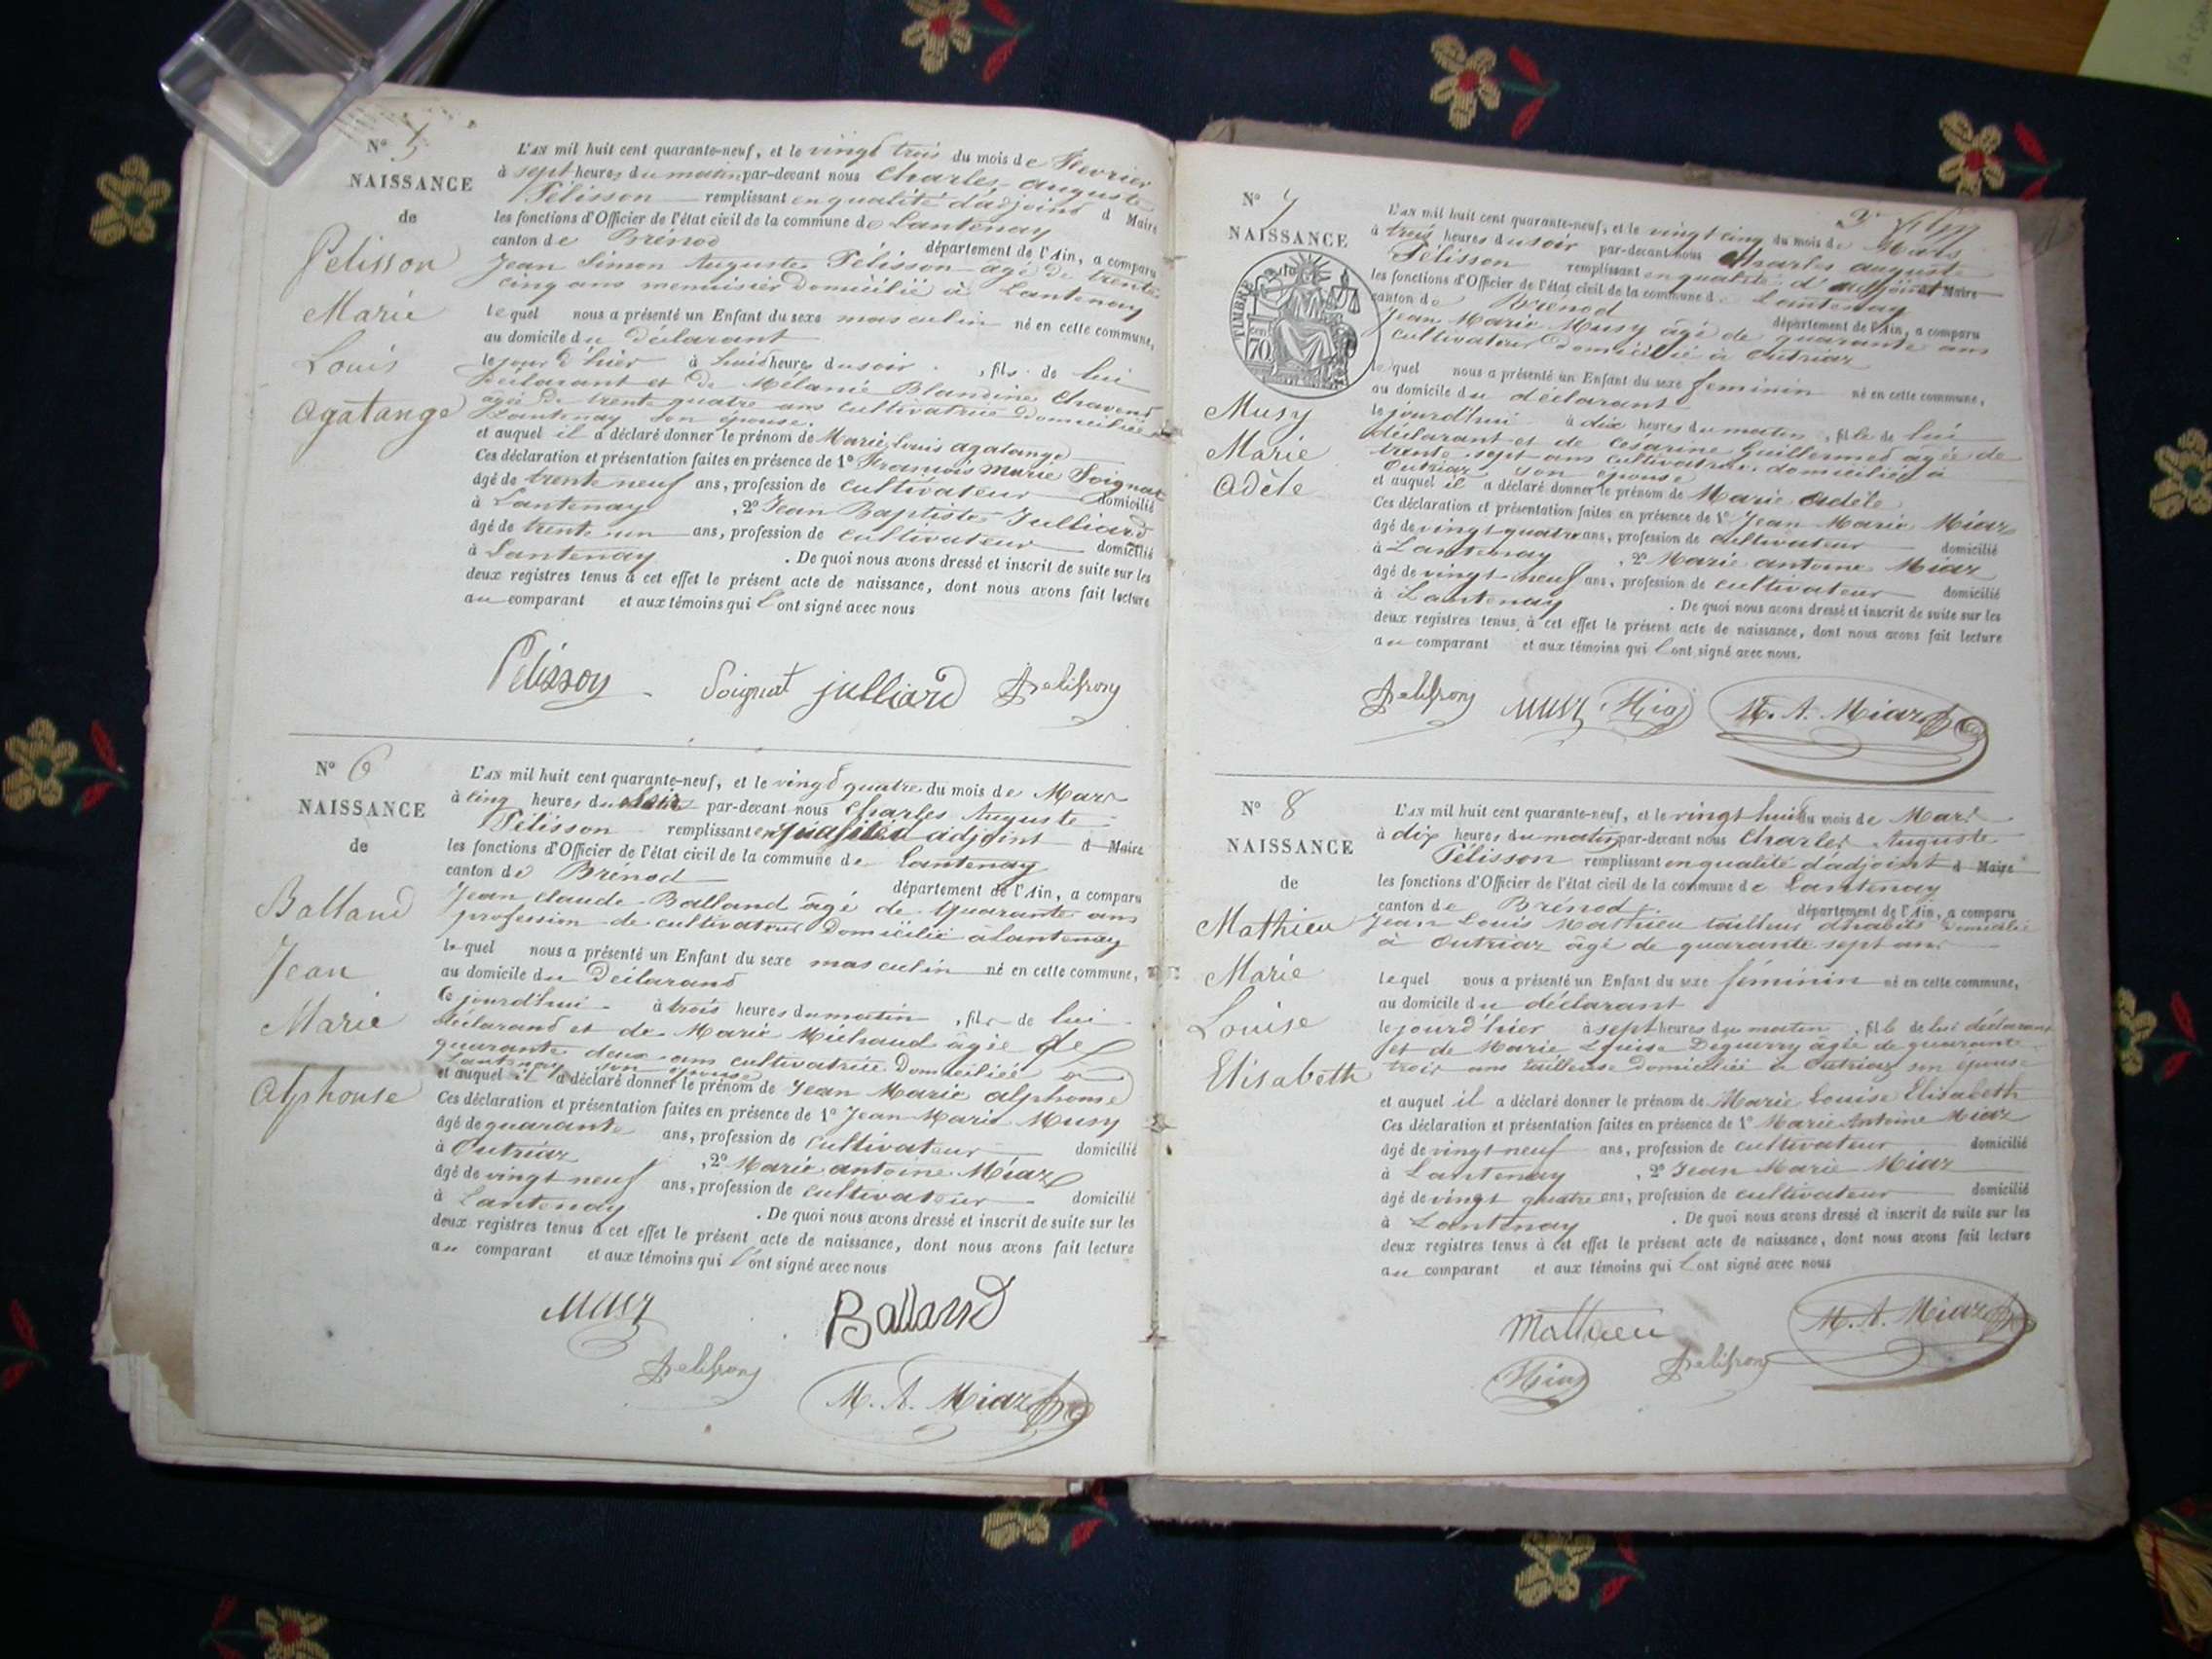 N° 5
NAISSANCE
de
Pelisson
Marie
Louis
Agatange
L'AN mil huit cent quarante-neuf, et le vingt trois du mois de Fevrier
à sept heures du matin par-devant nous Charles auguste
Pélisson remplissant en qualité d'adjoint d Maire
les fonctions d'Officier de l'état civil de la commune de Lantenay
canton de Brénod département de l'Ain, a comparu
Jean Simon Auguste Pélisson âgé de trente
cinq ans menuisier domicilié à Lantenay
lequel nous a présenté un Enfant du sexe masculin né en cette commune,
au domicile du déclarant
le jour d'hier à huit heures du soir, fils de lui
déclarant et de Mélanie Blandine Chavent
agée de trente quatre ans cultivatrice domiciliée à
Lantenay son épouse.
et auquel il a déclaré donner le prénom de Marie Louis agatange
Ces déclaration et présentation faites en présence de 1° François Marie Soignat
âgé de trente neuf ans, profession de cultivateur domicilié
à Lantenay, 2° Jean Baptiste Julliard
âgé de trente un ans, profession de cultivateur domicilié
à Lantenay. De quoi nous avons dressé et inscrit de suite sur les
deux registres tenus à cet effet le présent acte de naissance, dont nous avons fait lecture
au comparant et aux témoins qui l'ont signé avec nous
Pelisson Soignat julliard Pelisson
N° 6
NAISSANCE
de
Balland
Jean
Marie
Alphonse
L'AN mil huit cent quarante-neuf, et le vingt quatre du mois de Mars
à cinq heures du soir par-devant nous Charles Auguste
Pélisson remplissant en qualité d'adjoint d Maire
les fonctions d'Officier de l'état civil de la commune de Lantenay
canton de Brénod département de l'Ain, a comparu
Jean Claude Balland âgé de quarante ans
profession de cultivateur domicilié à Lantenay
lequel nous a présenté un Enfant du sexe masculin né en cette commune,
au domicile du déclarant
le jourd'hui à trois heures du matin, fils de lui
déclarant et de Marie Michaud âgée de
quarante deux ans cultivatrice domiciliée à
Lantenay son épouse
et auquel il a déclaré donner le prénom de Jean Marie alphonse
Ces déclaration et présentation faites en présence de 1° Jean Marie Musy
âgé de quarante ans, profession de cultivateur domicilié
à Outriaz, 2° Marie antoine Miaz
âgé de vingt neuf ans, profession de cultivateur domicilié
à Lantenay. De quoi nous avons dressé et inscrit de suite sur les
deux registres tenus à cet effet le présent acte de naissance, dont nous avons fait lecture
au comparant et aux témoins qui l'ont signé avec nous
Musy Balland
Pelisson
M. A. Miaz
N° 7
NAISSANCE
TIMBRE
70
Musy
Marie
Adèle
L'AN mil huit cent quarante-neuf, et le vingt cinq du mois de Mars
à trois heures du soir par-devant nous Charles auguste
Pélisson remplissant en qualité d'adjoint Maire
les fonctions d'Officier de l'état civil de la commune de Lantenay
canton de Brénod département de l'Ain, a comparu
Jean Marie Musy âgé de quarante ans
cultivateur domicilié à Outriaz
lequel nous a présenté un Enfant du sexe feminin né en cette commune,
au domicile du déclarant
le jourd'hui à dix heures du matin, fille de lui
déclarant et de Césarine Guillermet agée de
trente sept ans cultivatrice domiciliée à
Outriaz son épouse
et auquel il a déclaré donner le prénom de Marie adèle
Ces déclaration et présentation faites en présence de 1° Jean Marie Miaz
âgé de vingt quatre ans, profession de cultivateur domicilié
à Lantenay, 2° Marie antoine Miaz
âgé de vingt neuf ans, profession de cultivateur domicilié
à Lantenay. De quoi nous avons dressé et inscrit de suite sur les
deux registres tenus à cet effet le présent acte de naissance, dont nous avons fait lecture
au comparant et aux témoins qui l'ont signé avec nous.
Pelisson Musy Miaz M. A. Miaz
N° 8
NAISSANCE
de
Mathieu
Marie
Louise
Elisabeth
L'AN mil huit cent quarante-neuf, et le vingt huit du mois de Mars
à dix heures du matin par-devant nous Charles Auguste
Pélisson remplissant en qualité d'adjoint d Maire
les fonctions d'Officier de l'état civil de la commune de Lantenay
canton de Brénod département de l'Ain, a comparu
Jean Louis Mathieu tailleur d'habits domicilié
à Outriaz âgé de quarante sept ans
lequel nous a présenté un Enfant du sexe féminin né en cette commune,
au domicile du déclarant
le jour d'hier à sept heures du matin, fille de lui déclarant
et de Marie Louise Deguerry âgée de quarante
trois ans tailleuse domiciliée à Outriaz son épouse
et auquel il a déclaré donner le prénom de Marie Louise Elisabeth
Ces déclaration et présentation faites en présence de 1° Marie Antoine Miaz
âgé de vingt neuf ans, profession de cultivateur domicilié
à Lantenay, 2° Jean Marie Miaz
âgé de vingt quatre ans, profession de cultivateur domicilié
à Lantenay. De quoi nous avons dressé et inscrit de suite sur les
deux registres tenus à cet effet le présent acte de naissance, dont nous avons fait lecture
au comparant et aux témoins qui l'ont signé avec nous
Mathieu M. A. Miaz
Miaz Pelisson